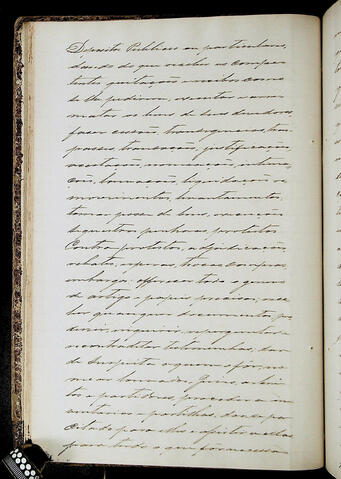 Depositos Publicos ou particulares,
dando do que receber as compe
tentes quitações, recibos como
se lhe pedirem, executar e arre
matar os bens de seus devedores,
fazer cessão, transigencias, tres
passes, transação, justificação,
acceitação, nomeação, intima
ção, louvação, liquidação e
movimentos, levantamentos,
tomar posse de bens, execuções
sequestros, penhoras, protestos
contra protestos, adjudicação
rebates, esperas, trocas, compras,
embargos, offerecer todo o genero
de artigo e papeis precisos, rece
ber quaesquer documentos, pro
duzir, inquirir, reperguntar e
contraditar testemunhas, dar
de suspeito a quem o fôr, no
mear louvados, Juizes, arbi
tros e partidores, proceder a in
ventarios e partilhas,
citado para elles
para tudo o que fôr necessa